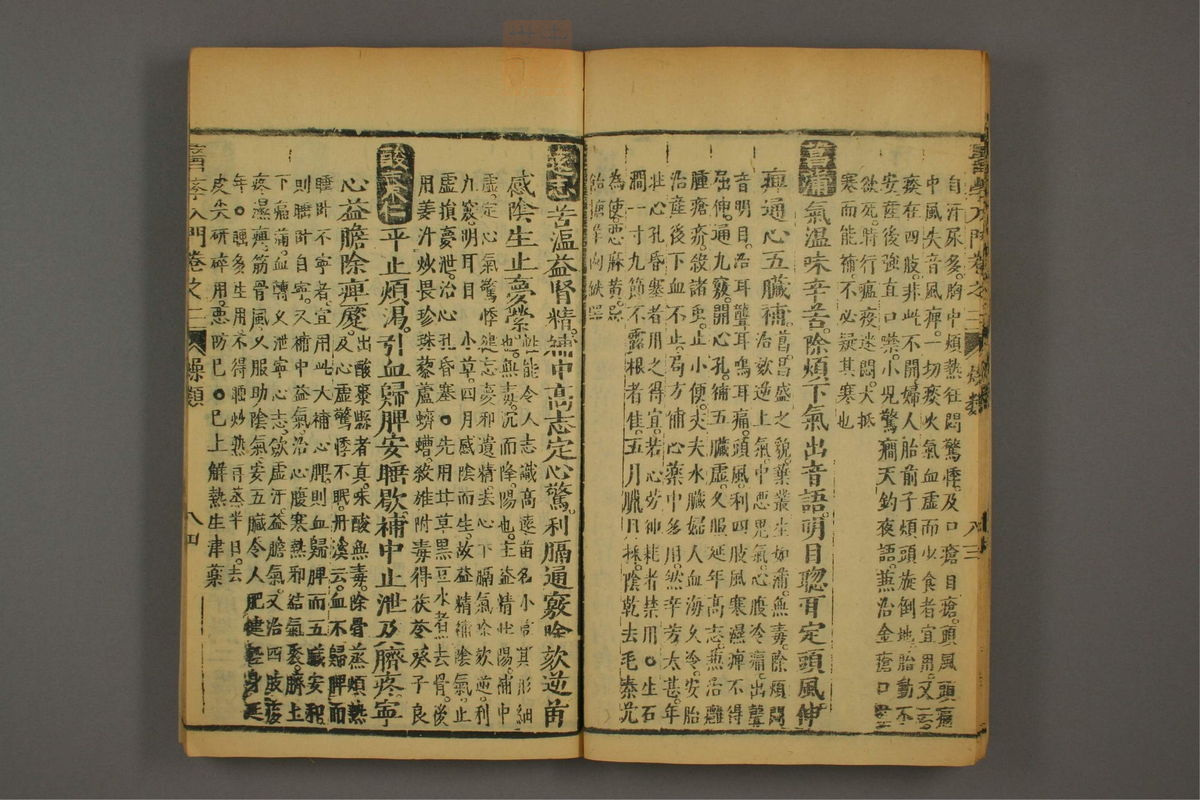 自汗尿多。胸中煩熱狂悶驚悸。及口瘡目瘡。頭風頭痛
中風失音風痺。一切痰火氣血虛而少食者宜用。又云。
痰在四肢。非此不開婦人胎前子煩頭旋倒地。胎動不
安產後強直口噤。小兒驚癇天釣夜語。兼治金瘡口噤
欲死。時行瘟疫迷悶。大抵
寒而能補。不必疑其寒也
菖蒲 氣溫味辛苦。除煩下氣出音語。明目聰耳定頭風。伸
痺通心五臟補。
菖。昌盛之貌。藥叢生如蒲。無毒。除煩悶
治欬逆上氣中惡鬼氣。心腹冷痛。出聲
音明目。治耳聾耳鳴耳痛。頭風。利四肢風寒濕痺不得
強伸。通九竅。開心孔。補五臟虛。久服延年高志。兼治雞
腫瘡疥。殺諸虫。止小便。夫夫水臟。婦人血海久冷。安胎
治產後下血不止。局方補心藥中多用。然辛芳太甚。年
壯心孔昏塞者用之得宜。若心勞神耗者禁用。○生石
澗一寸九節不露根者佳。五月臘日採。陰乾去毛秦艽
為使。惡麻黃。忌
飴糖羊肉鐵器
遠志 苦溫益腎精。補中高志定心驚。利膈通竅除欬逆。苗
感陰生止夢縈。
此能令人志識高遠苗名小草其形細
也。無毒。沉而降。陽也。主益精壯陽補中
虛。定心氣驚悸。健忘夢邪遺精。去心下膈氣。除欬逆。利
九竅。明耳目。小草。四月感陰而生。故益精補陰氣。止
虛損夢泄。治心孔昏塞。○先用甘草黑豆水煮去骨。後
用姜汁炒畏珍珠藜蘆蠐螬。殺雄附毒得茯苓葵子良
酸棗仁 平止煩渴。引血歸脾安睡歇。補中止泄及臍疼。寧
心益膽除痺蹷。
出酸棗縣者真。味酸無毒。除骨蒸煩熱
及心虛驚悸不眠。丹溪云。血不歸脾而
睡臥不寧者。宜用此大補心脾。則血歸脾而五臟安和
則睡臥自寧。又補中益氣。治心腹寒熱邪結氣聚。臍上
下痛滿。血轉久泄寧心志。歛虛汗。益膽氣。又治四肢痠
疼濕痺。筋骨風。久服助陰氣。安五臟令人肥健輕身延
年。○睡多生用不得睡炒熟再蒸半日。去
皮尖研碎用。惡防已。○已上解熱生津藥
醫學入門卷之二 燥類 八四